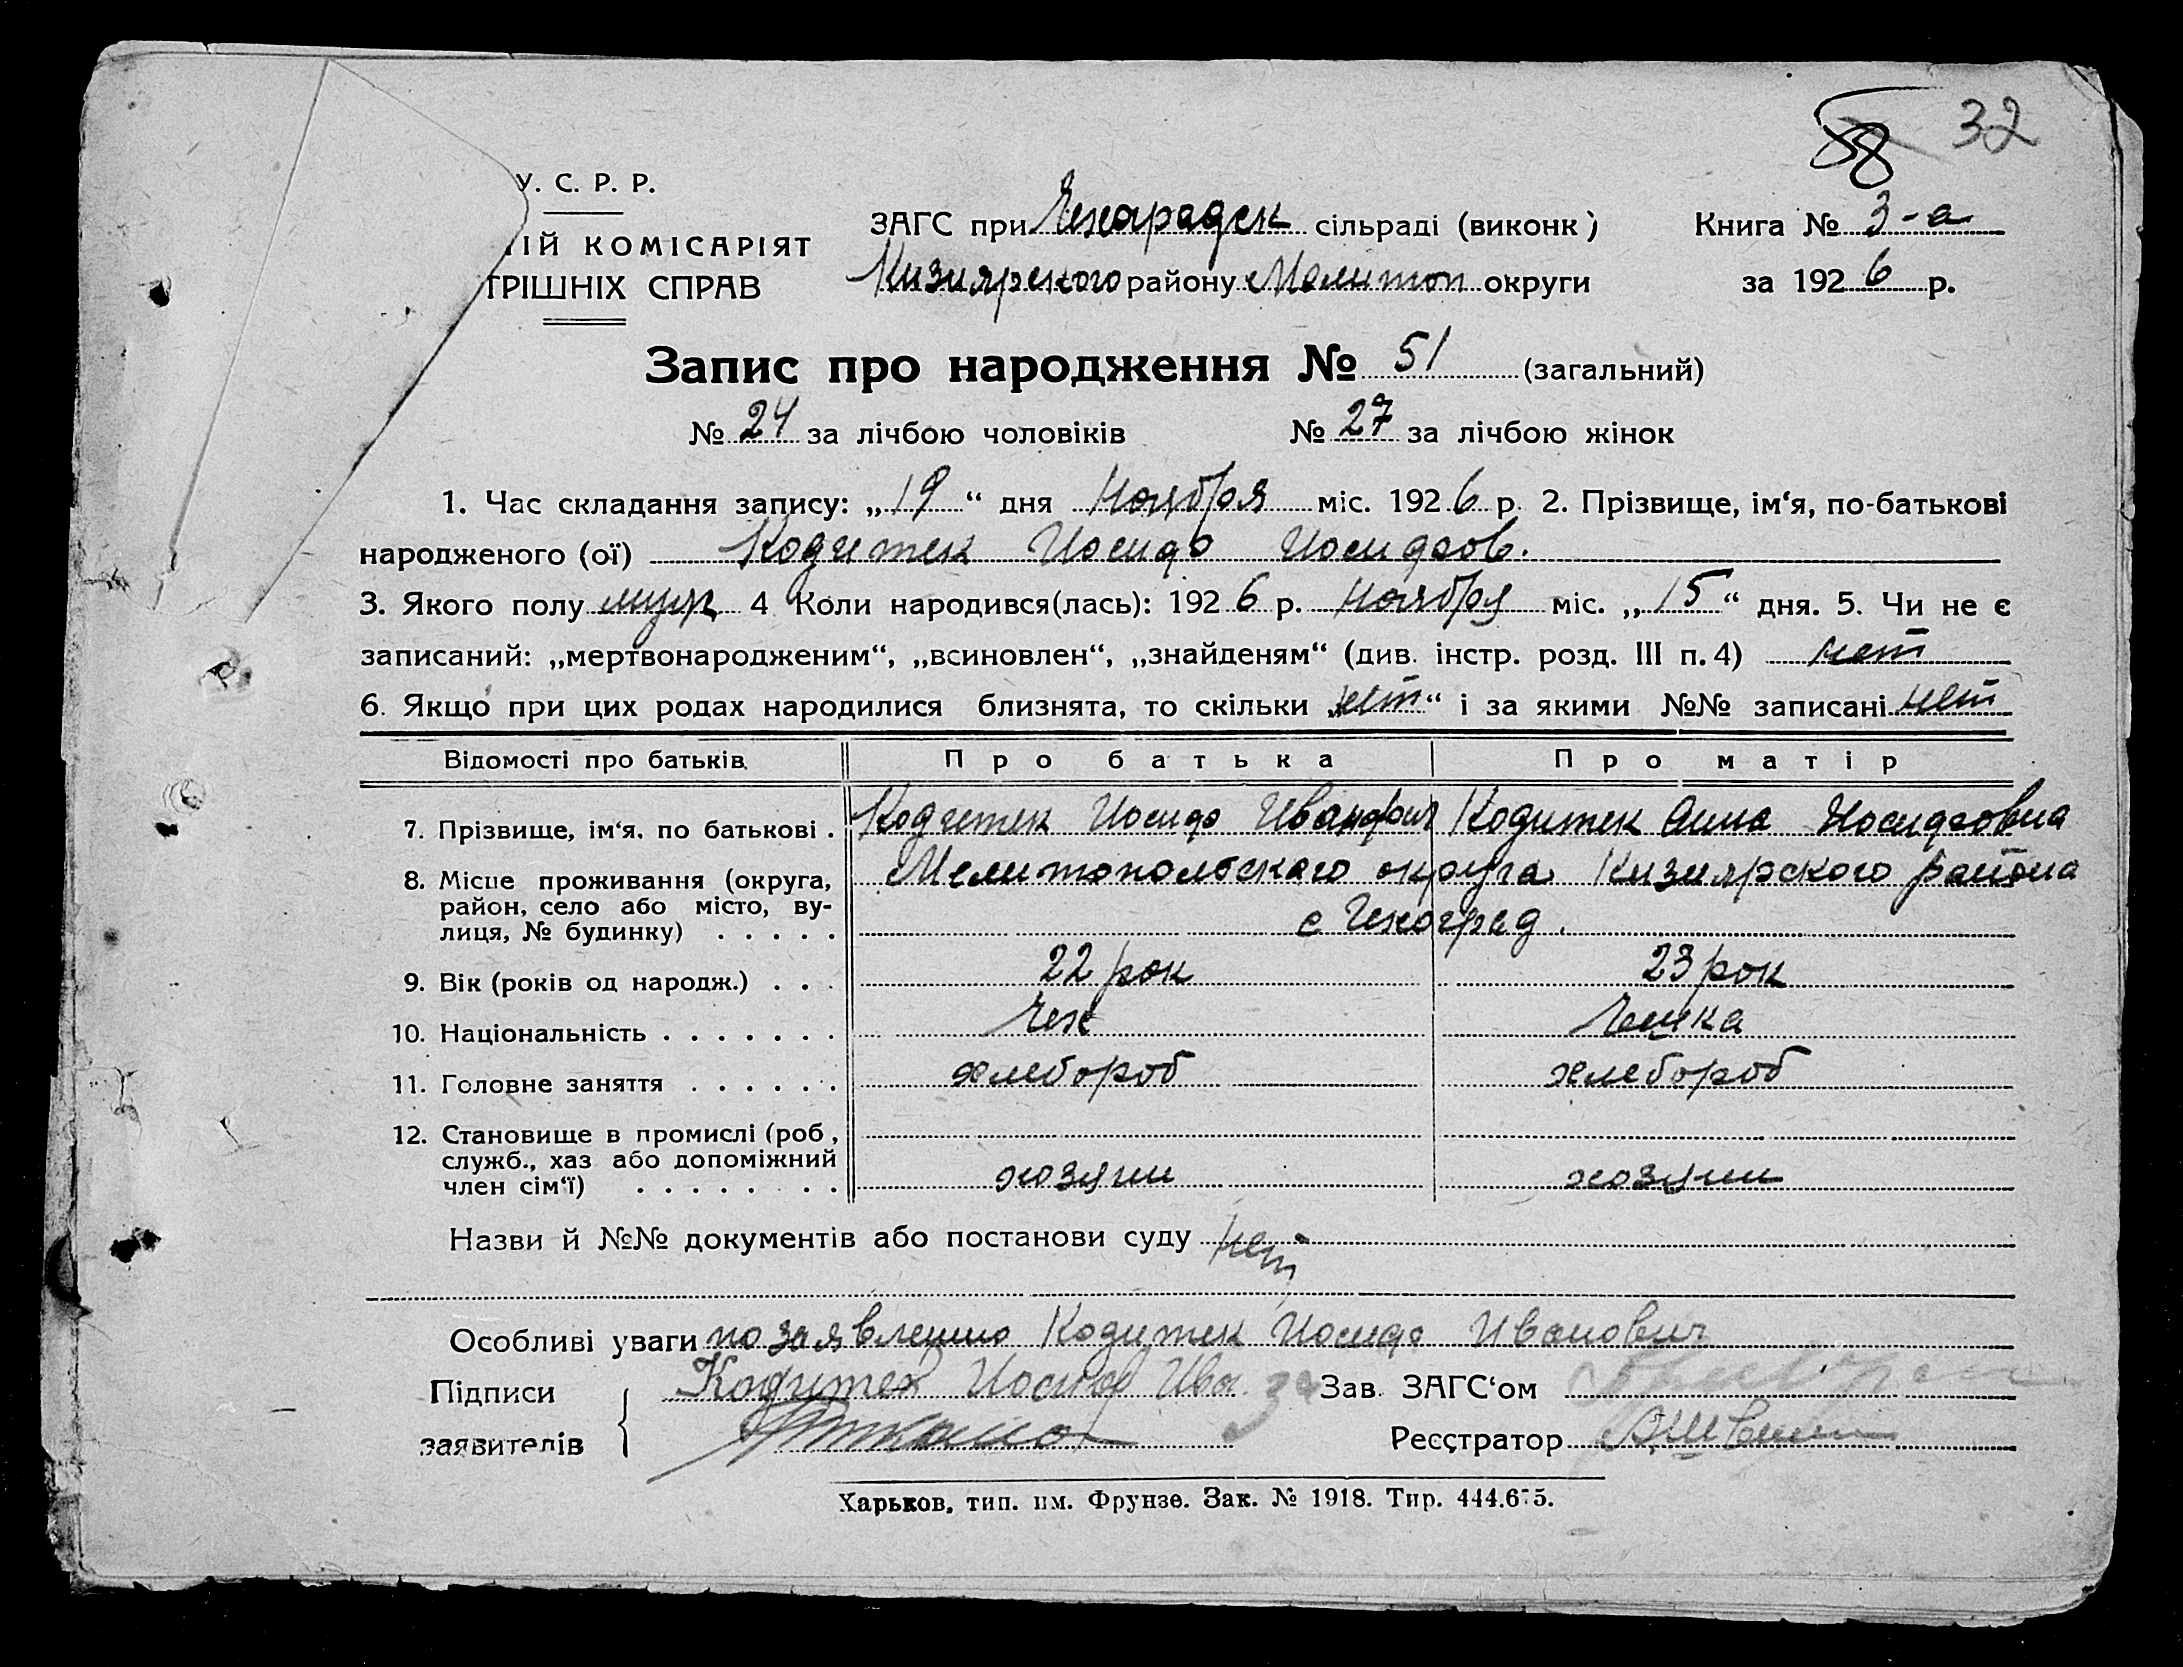 88 32
У. С. Р. Р.
ІЙ КОМІСАРІЯТ
ТРІШНІХ СПРАВ
ЗАГС при Чехорадск сільраді (виконк)
Кизиярского району Мелитоп округи
Книга № 3-а
за 1926 р.
Запис про народження № 51 (загальний)
№ 24 за лічбою чоловіків № 27 за лічбою жінок
1. Час складання запису: „19“ дня Ноября міс. 1926 р. 2. Прізвище, ім‘я, по-батькові
народженого (ої) Кодитек Иосиф Иосифов.
3. Якого полу муж 4 Коли народився(лась): 1926 р. Ноября міс. „15“ дня. 5. Чи не є
записаний: „мертвонародженим“, „всиновлен“, „знайденям“ (див. інстр. розд. III п. 4) нет
6. Якщо при цих родах народилися близнята, то скільки „нет“ і за якими №№ записані нет
Відомості про батьків Про батька Про матір
7. Прізвище, ім‘я, по батькові . Кодитек Иосиф Иванович Кодитек Анна Иосифовна
8. Місце проживання (округа, Мелитопольского округа Кизиярского района
район, село або місто, ву-
лиця, № будинку) . . . . . с Чехоград.
9. Вік (років од народж.) . . . 22 рок 23 рок
10. Національність . . . . . . . Чех Чешка
11. Головне заняття . . . . . . хлебороб хлебороб
12. Становище в промислі (роб,
служб., хаз або допоміжний
член сім‘ї) . . . . . . . хозяин хозяин
Назви й №№ документів або постанови суду нет
Особливі уваги по заявлению Кодитек Иосиф Иванович
Підписи Кодитек Иосиф Ива Зав. ЗАГС‘ом
заявителів Реєстратор
Харьков, тип. им. Фрунзе. Зак. № 1918. Тир. 444.675.